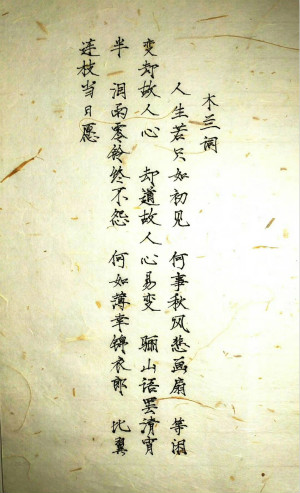 木兰阕
人生若只如初见 何事秋风悲画扇 等闲
变却故人心 却道故人心易变 骊山语罢清宵
半 泪雨零铃终不怨 何如薄幸锦衣郎 比翼
连枝当日愿